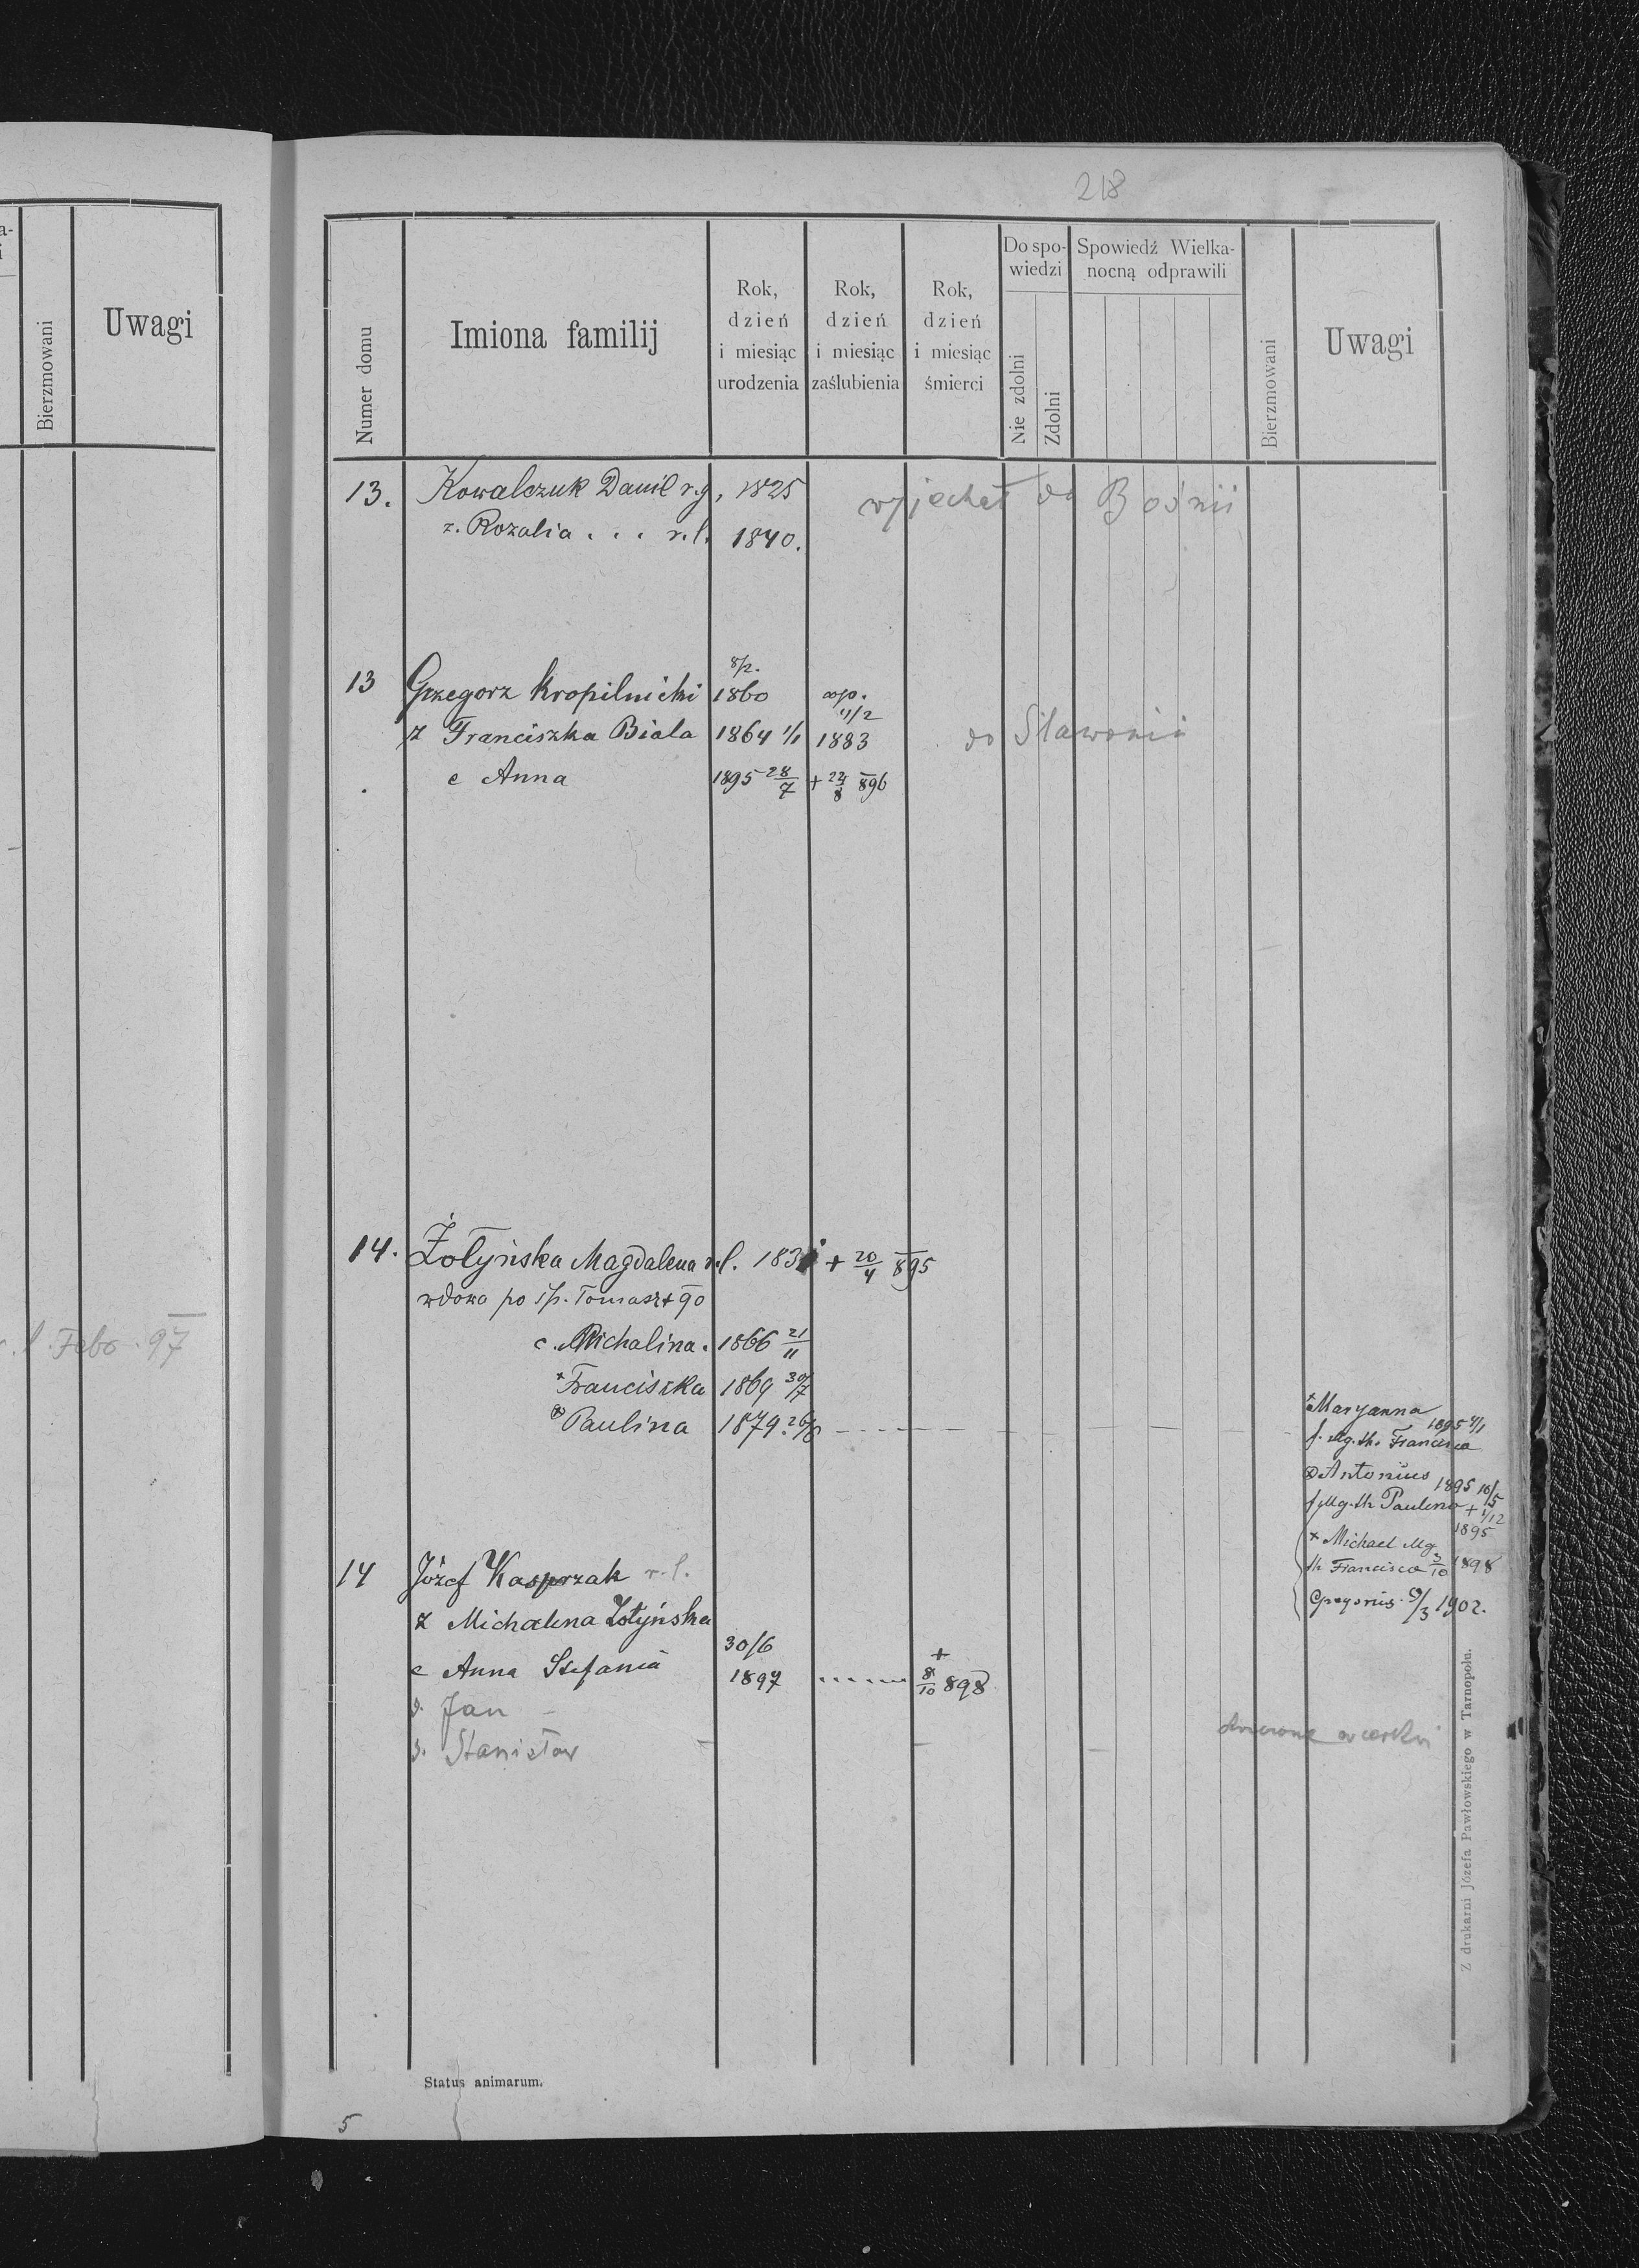 a-
i
Bierzmowani
Uwagi
r. l. Febr. 97
218
Numer domu
Imiona familij
Rok,
dzień
i miesiąc
urodzenia
Rok,
dzień
i miesiąc
zaślubienia
Rok,
dzień
i miesiąc
śmierci
Do spo-
wiedzi
Nie zdolni
Zdolni
Spowiedź Wielka-
nocną odprawili
Bierzmowani
Uwagi
13. Kowalczuk Danil r.g. 1825 wyjechał do Bośnii
z. Rozalia . . . r.l. 1840.
8/2.
13 Grzegorz Kropilnicki 1860
11/2
z Franciszka Biala 1864 1/1 1883 do Slawonii
c Anna 1895 28/7 + 24/8 896
14. Żołyńska Magdalena r.l. 183 + 20/4 895
wdowa po śp. Tomasz + 90
c. Michalina. 1866 21/11
+ Franciszka 1869 30/7
Paulina 1879. 26/8
+ Maryanna
1895 4/1
f. Mg. th. Francisca
Antonius 1895 10/5
f Mg. th Paulina + 1/12
1895
+ Michael Mg
th Francisca 3/10 1898
Gregorius 9/3 1902.
14 Józef Kasprzak r.l.
z Michalina Żołyńska
30/6 +
c Anna Stefania 1897 ...... 8/10 898
s. Jan –
s. Stanisław – – –
chrzczone w cerkwi
Z drukarni Józefa Pawłowskiego w Tarnopolu.
Status animarum.
5